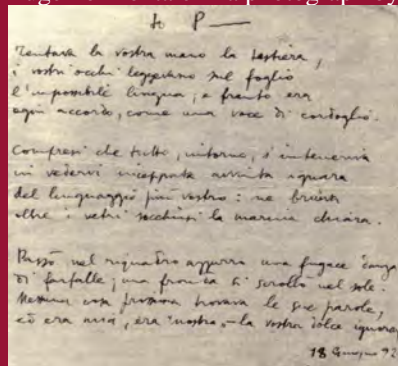 to P—
Tentava la vostra mano la tastiera,
i vostri occhi leggevano sul foglio
l'impossibile lingua, e franto era
ogni accordo, come una voce di cordoglio.
Compresi che tutto, intorno, s'inteneriva
in vedervi inceppata ignara
del linguaggio più vostro: ne bruiva
oltre i vetri socchiusi la marina chiara.
Passò nel riquadro azzurro una fugace danza
di farfalle; una fronda si scrollò nel sole.
Nessuna cosa prossima trovava le sue parole,
ed era mia, era nostra, la vostra dolce ignora
18 Giugno 92